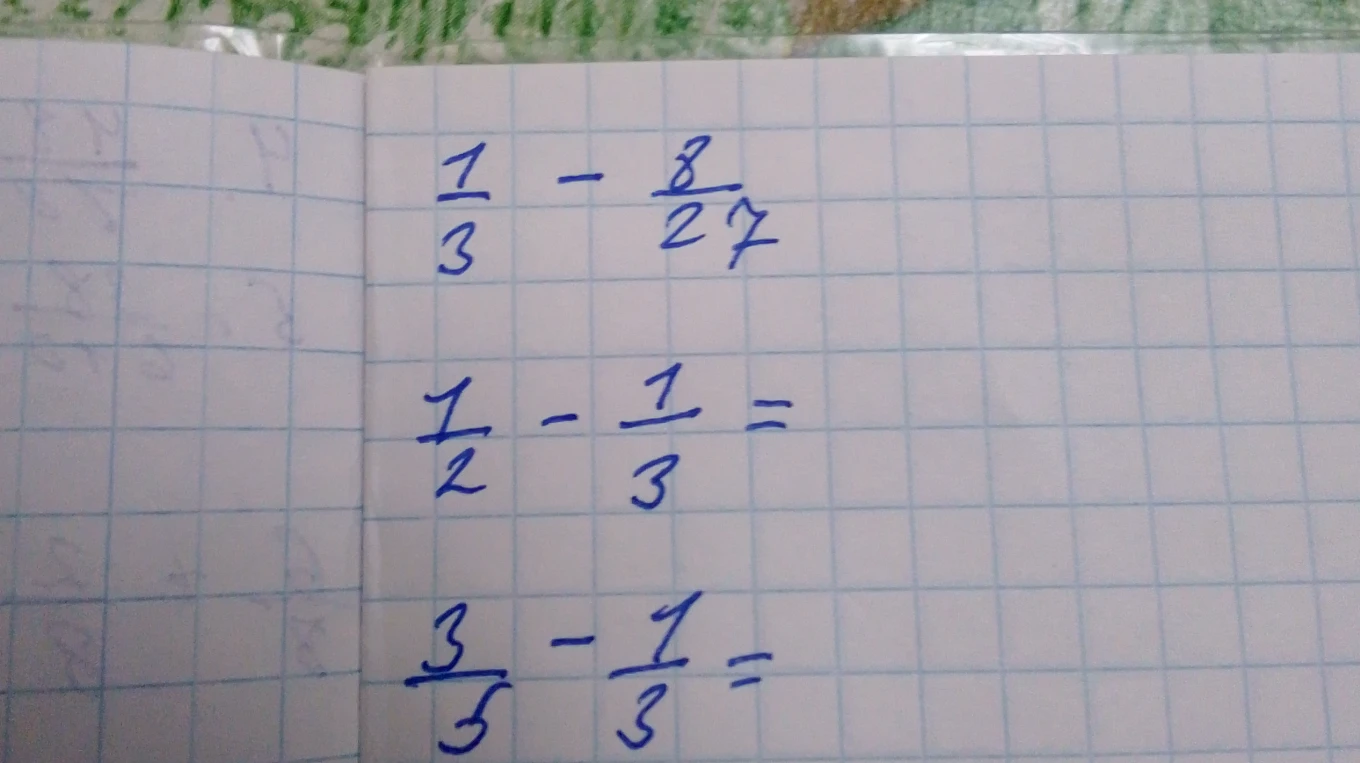 1/3 - 8/27
1/2 - 1/3 =
3/5 - 1/3 =